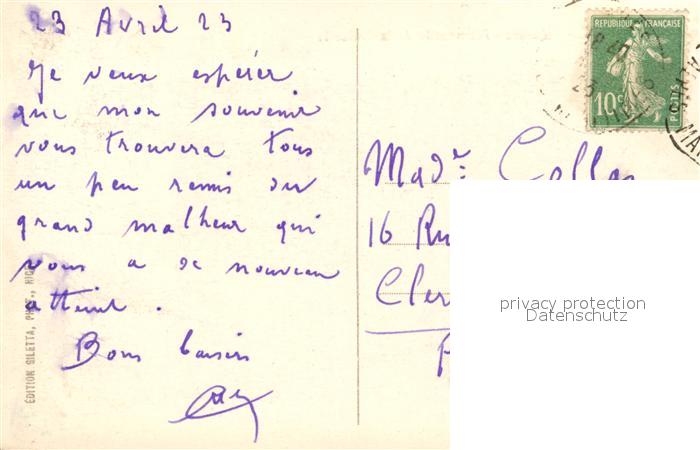 23 Avril 23
Je veux espérer
que mon souvenir
vous trouvera tous
un peu remis du
grand malheur qui
vous a de nouveau
atteint.
Bons baisers
ÉDITION GILETTA, PHOT., NICE
REPUBLIQUE FRANÇAISE
10c
POSTES
Madr
16 Ru
Cler
privacy protection
Datenschutz